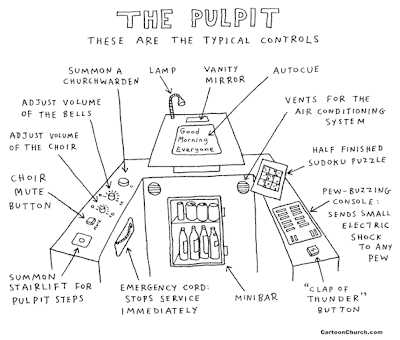 THE PULPIT
THESE ARE THE TYPICAL CONTROLS
SUMMON A
CHURCHWARDEN
LAMP
VANITY
MIRROR
AUTOCUE
ADJUST VOLUME
OF THE BELLS
VENTS FOR THE
AIR CONDITIONING
SYSTEM
ADJUST VOLUME
OF THE CHOIR
Good
Morning
Everyone
HALF FINISHED
SUDOKU PUZZLE
CHOIR
MUTE
BUTTON
PEW-BUZZING
CONSOLE:
SENDS SMALL
ELECTRIC
SHOCK
TO ANY
PEW
SUMMON
STAIRLIFT FOR
PULPIT STEPS
EMERGENCY CORD:
STOPS SERVICE
IMMEDIATELY
MINIBAR
"CLAP OF
THUNDER"
BUTTON
CartoonChurch.com